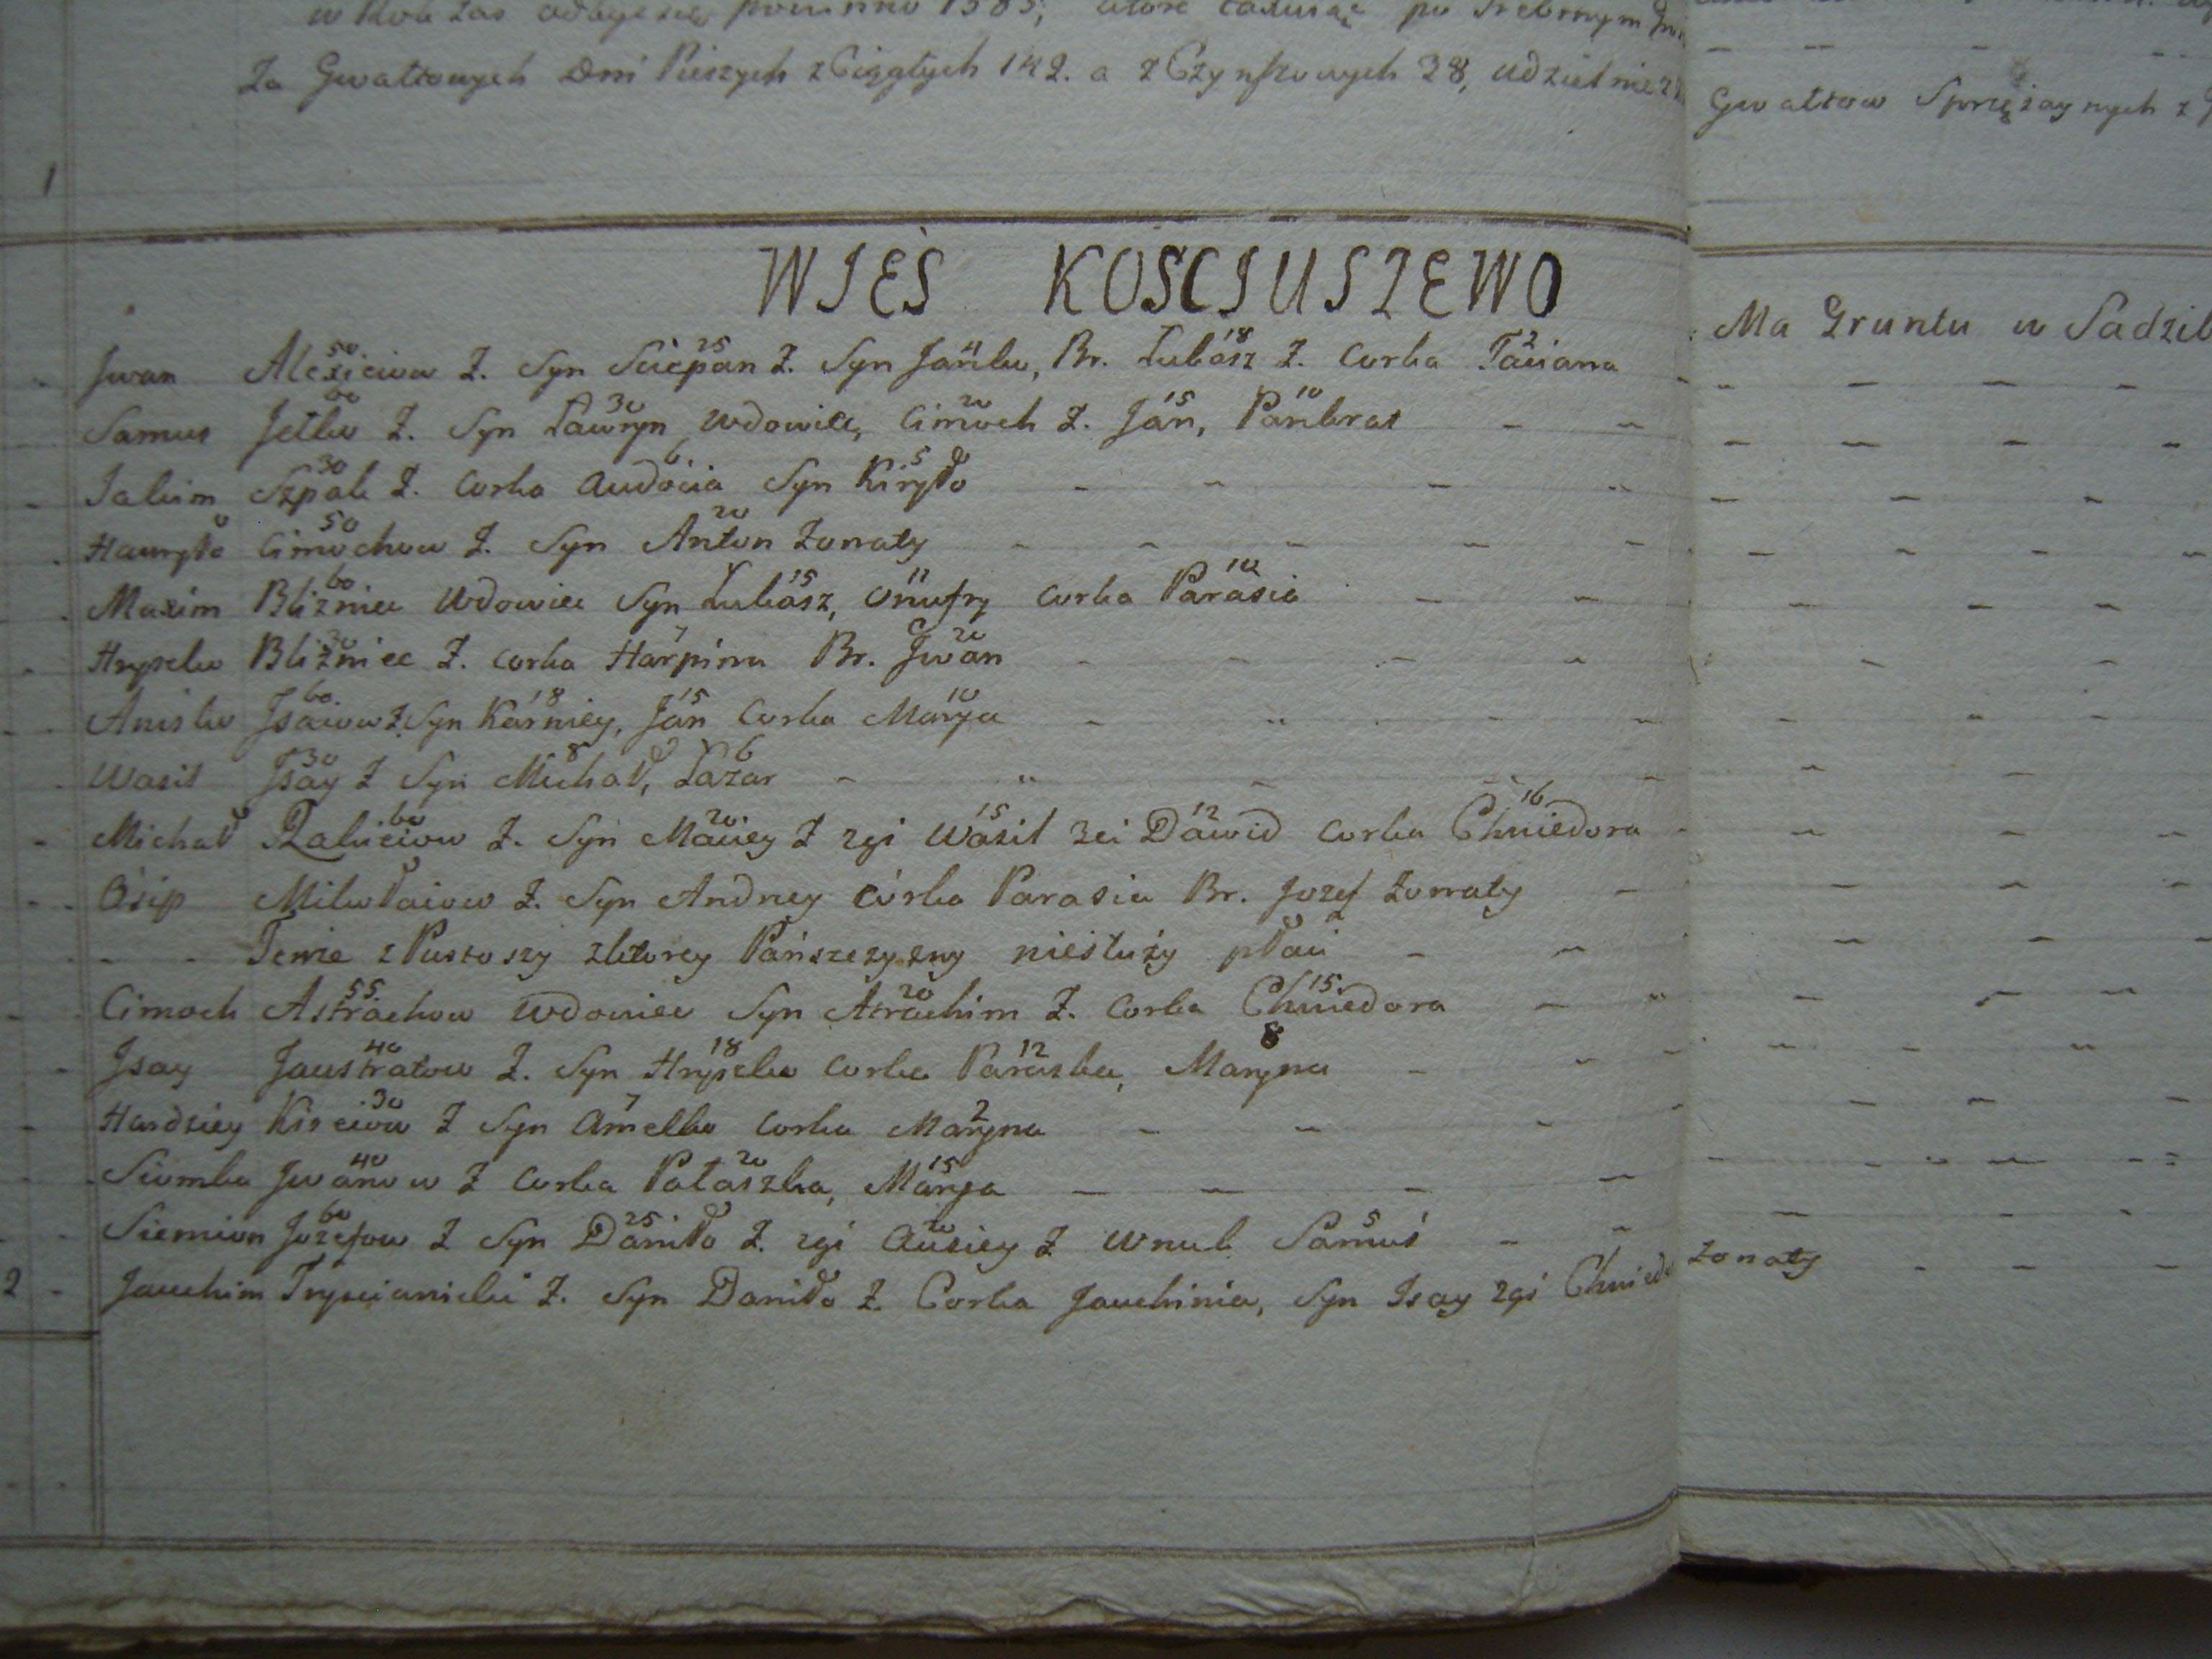 w Rok zas odbyć się powinno 1585; które taxuiąc po Srebrnym
Za Gwałtowych Dni Pieszych z Ciągłych 142. a z Czynszowych 38, udzielnie
Gwałtow Sprzężaynych z
1
WIEŚ KOSCIUSZEWO
Ma Gruntu w Sadzib
Jwan Alexieiew 50 Ż. Syn Sciepan 25 Ż. Syn Janko 4, Br. Łukasz 18 Ż. Corka Taciana 2
Samus Jetko 60 Ż. Syn Ławryn 30 Wdowiec, Cimoch 20 Ż. Jan 15, Pankrat 10
Jakim Szpak 30 Ż. Corka Audocia 6 Syn Kiryło 5
Hawryło Cimochow 50 Ż. Syn Anton 20 Żonaty
Maxim Blizniec 60 Wdowiec Syn Łukasz 15, Onufry 11 Corka Parasia 10
Hryszko Blizniec 30 Ż. Corka Harpina 7 Br. Jwan 20
Anisko Jsaiow 60 Ż. Syn Karniey 18, Jan 15 Corka Marya 10
Wasil Jsay 30 Ż Syn Michał 8, Łazar 6
Michał 60 Ż. Syn Maciey 20 Ż 2gi Wasil 15 3ci Dawid 12 Corka Chwiedora 16
Osip Mikołaiow Ż. Syn Andrey Córka Parasia Br. Jozef Żonaty
Tenże z Pustoszy z ktorey Pańszczyzny niesłuży płaci
Cimoch Astrachow 55 Wdowiec Syn Atrachim 20 Ż. Corka Chwiedora 15
Jsay Jaustratow 40 Ż. Syn Hryszko 18 Corka Paraska 12, Maryna 8
Hardziey Kizeiow 30 Ż Syn Amelko 7 Corka Maryna 2
Siomka Jwanow 40 Ż Corka Pałaszka 20, Marya 15
Siemion Jozefow 60 Ż Syn Daniło 25 Ż. 2gi Auxiey 20 Ż Wnuk Samuś 5
2 Jauchim Ż. Syn Daniło Ż. Corka Jauchinia, Syn Jsay 2gi Chwiedo Żonaty